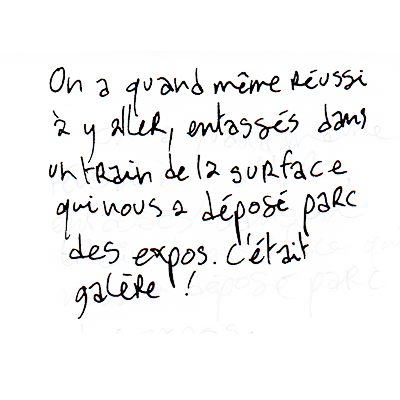 On a quand même réussi
à y aller, entassés dans
un train de la surface
qui nous a déposé parc
des expos. C'était
galère !